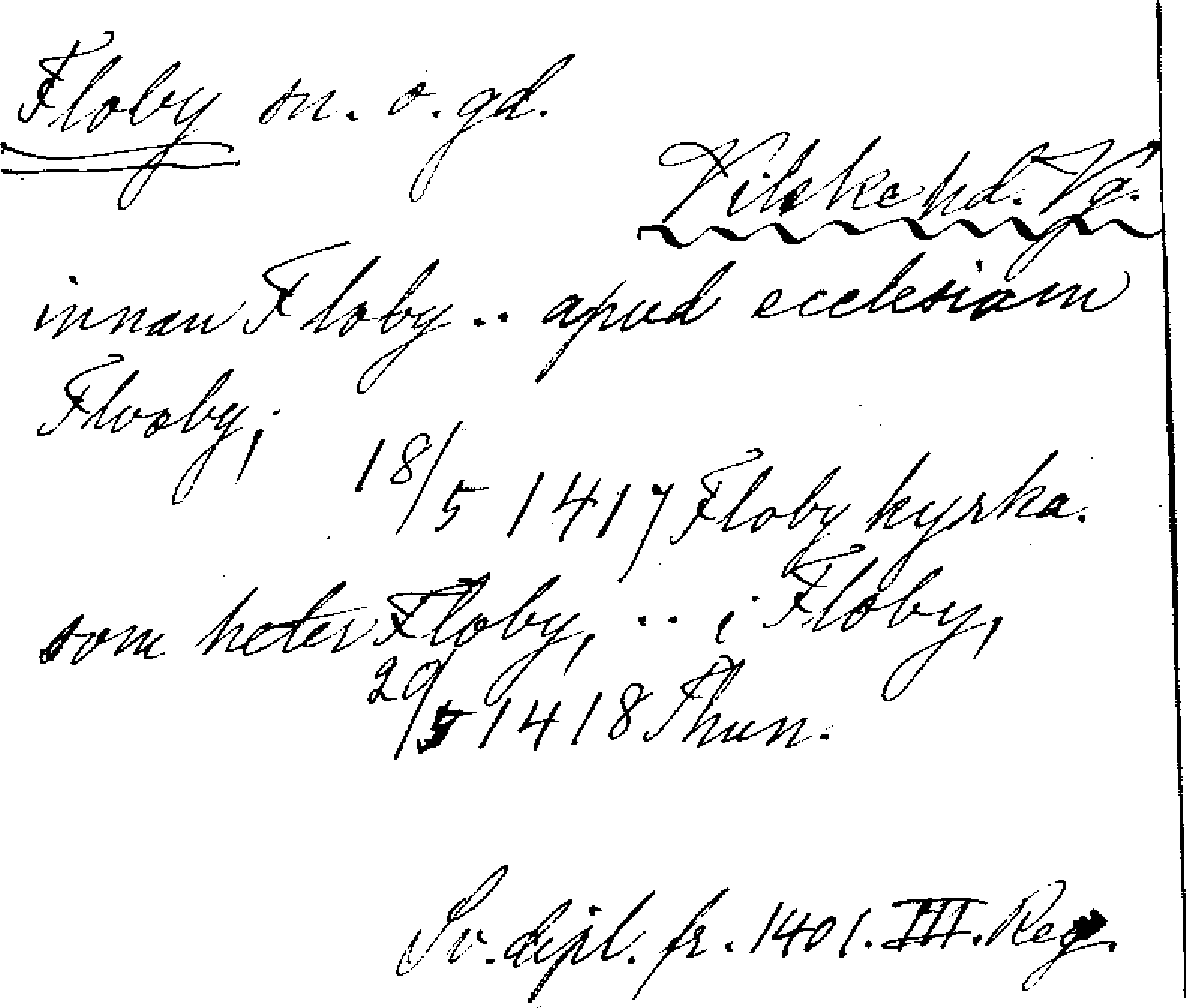 Floby sn. o. gd.
Vilske hd. Vg.
innan Floby .. apud ecclesiam
Flooby;
18/5 1417 Floby kyrka.
som heter Floby, .. i Floby,
29/5 1418 Thun.
Sv. dipl. fr. 1401. III. Reg.